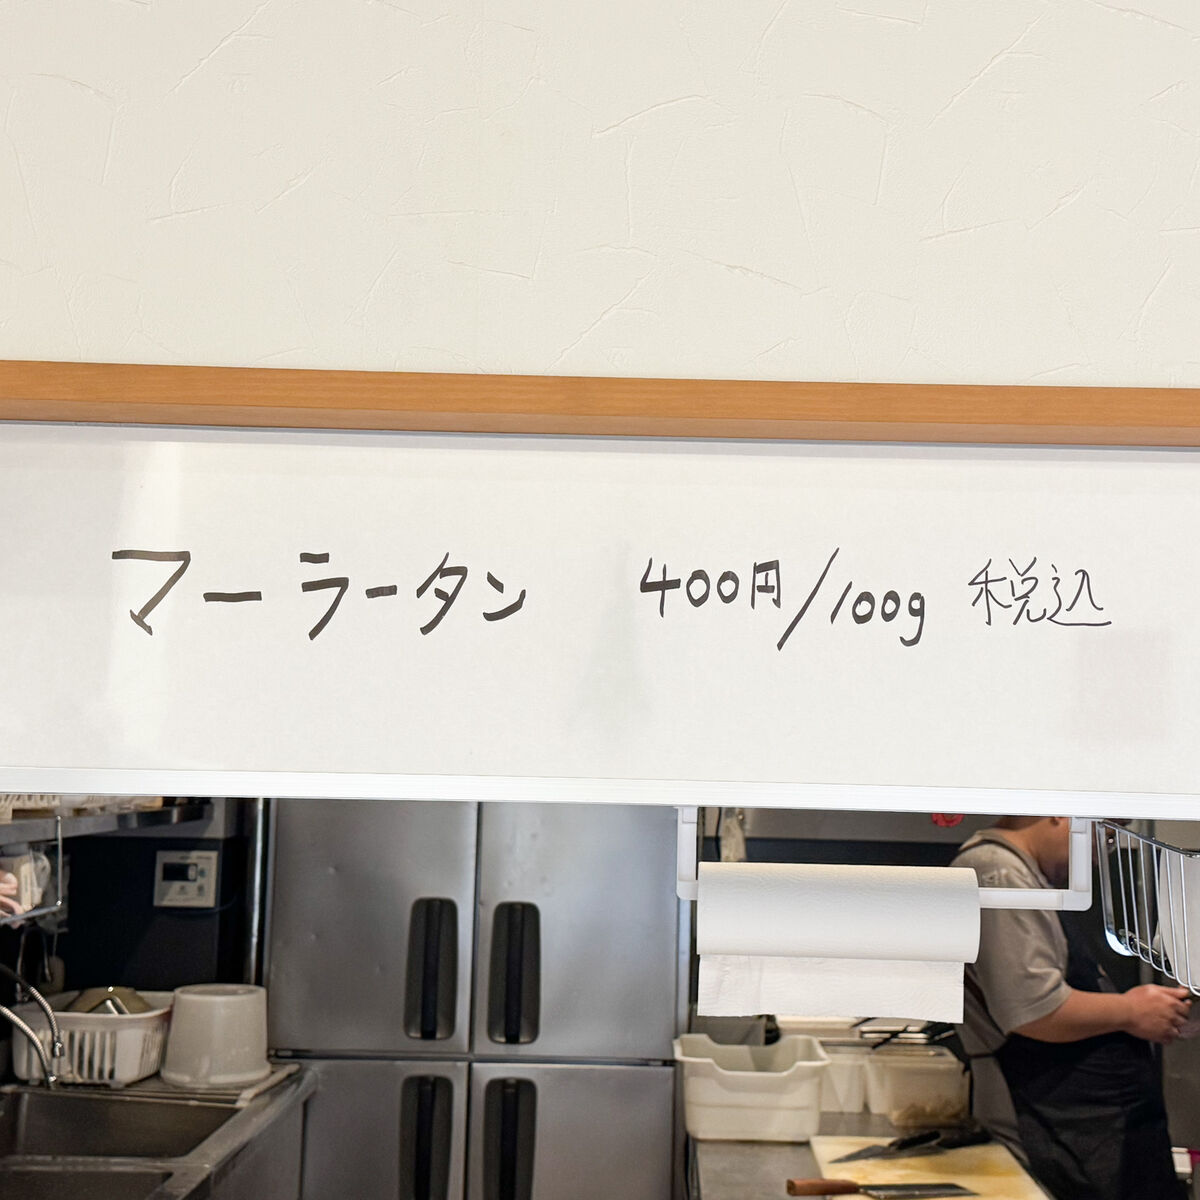 マーラータン 400円/100g 税込